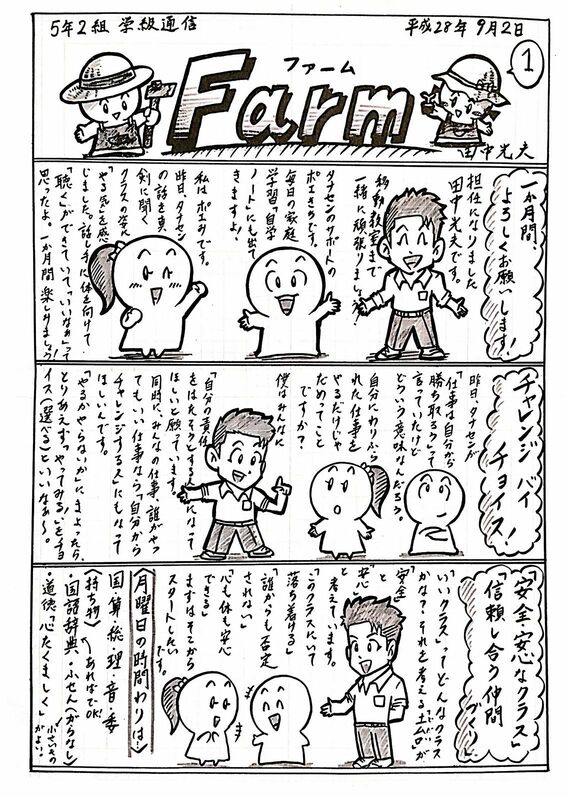 5年2組 学級通信
平成28年 9月2日
1
ファーム
Farm
田中光夫
一か月間
よろしくお願いします!
担任になりました
田中光夫です。
移動教室まで
一緒に頑張りましょう!
タナセンのサポートの
ポエきちです。
毎日の家庭
学習「自学
ノート」にも出て
きますよ!
私はポエみです。
昨日、タナセン
の話を真
剣に聞く
クラスの姿に
「やる気」を感
じました。話し手に体を向けて
「聴く」ができていて「いいなぁ」って
思ったよ。一か月間楽しみましょう!
チャレンジ バイ
チョイス!
昨日、タナセンが
「仕事は自分から
勝ち取ろう」って
言っていたけど
どういう意味なんだろう。
自分にわりふら
れた仕事を
やるだけじゃ
だめってこと
ですか?
僕はみんなに
「自分の責任
をはたそうとする人」になって
ほしいと願っています。
同時に、みんなの仕事、誰がやっ
てもいい仕事なら「自分から
チャレンジする人」にもなって
ほしいんです。
「やるかやらないか」にまよったら、
とりあえず「やってみる」をチョ
イス(選べる)といいなぁ〜。
「安全・安心なクラス」
「信頼し合う仲間
づくり」
"いいクラス"ってどんなクラス
かな?それを考える土台が
「安全」
と
「安心」
と考えています。
「このクラスにいて
落ち着ける」
「誰からも否定
されない」
「心も体も安心
できる」
まずはそこから
スタートしたい
です。
〈月曜日の時間わりは…〉
国・算・総・理・音・委
〈持ち物〉 あればでOK!
・国語辞典・ふせん(からなし)
・道徳「心たくましく」
小さいもの
がよい。